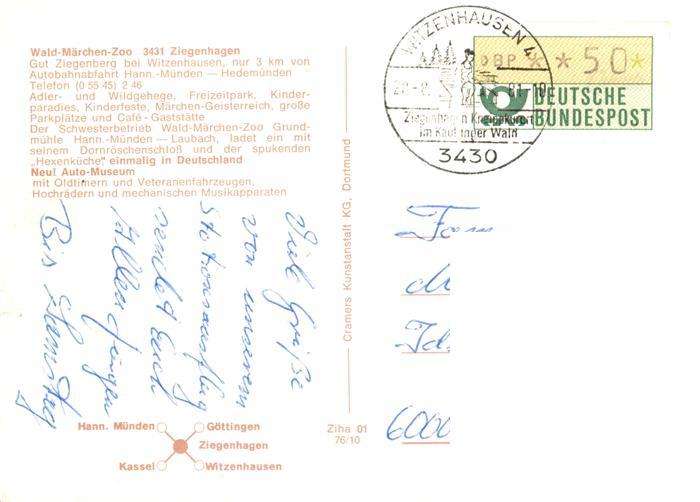 Wald-Märchen-Zoo 3431 Ziegenhagen
Gut Ziegenberg bei Witzenhausen, nur 3 km von
Autobahnabfahrt Hann.-Münden — Hedemünden
Telefon (0 55 45) 2 46
Adler- und Wildgehege, Freizeitpark, Kinder-
paradies, Kinderfeste, Märchen-Geisterreich, große
Parkplätze und Café - Gaststätte
Der Schwesterbetrieb Wald-Märchen-Zoo Grund-
mühle Hann.-Münden — Laubach, ladet ein mit
seinem Dornröschenschloß und der spukenden
„Hexenküche" einmalig in Deutschland
Neu! Auto-Museum
mit Oldtimern und Veteranenfahrzeugen,
Hochrädern und mechanischen Musikapparaten
Viele Grüße
von unserem
Stationsausflug
sendet Euch
Allen
Bis Samstag
Hann. Münden
Göttingen
Ziegenhagen
Kassel
Witzenhausen
Cramers Kunstanstalt KG, Dortmund
Ziha 01
76/10
WITZENHAUSEN 4
Ziegenhagen Kneippkurort
im Kaufunger Wald
3430
DBP * * 50 *
DEUTSCHE
BUNDESPOST
Fam
6000